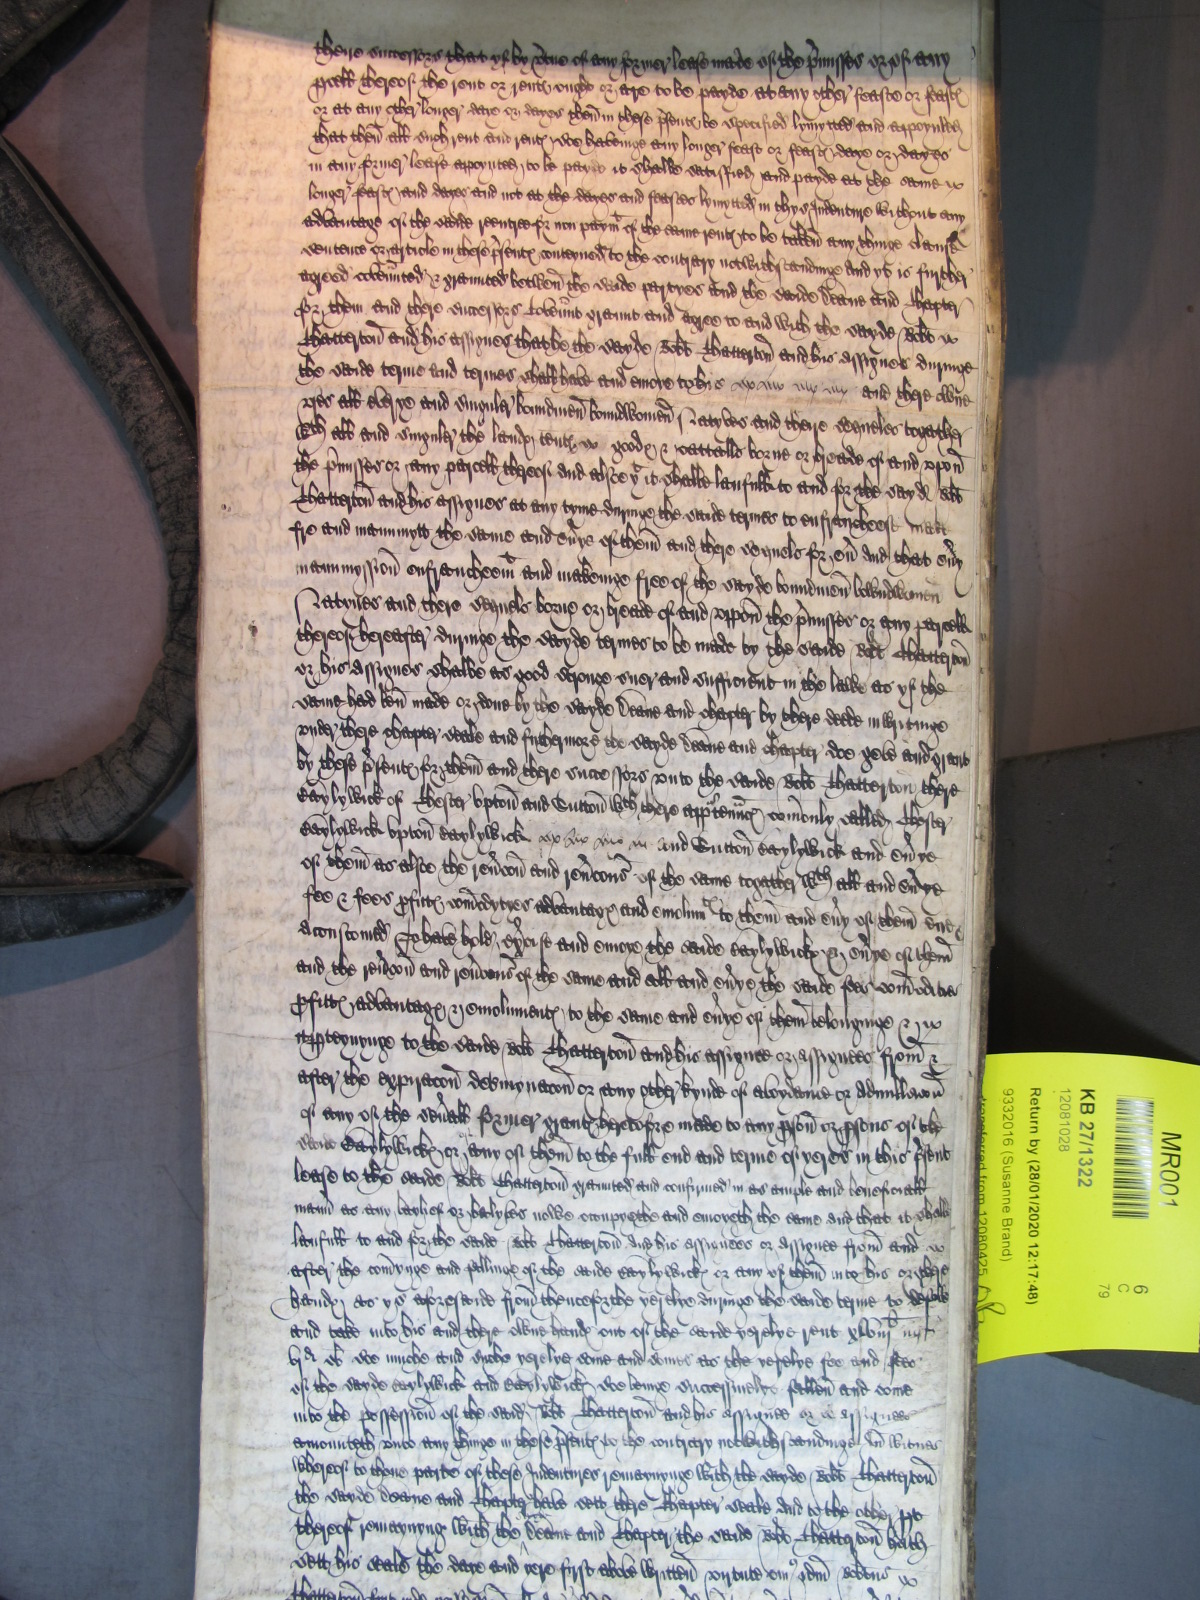 there successors that yf by v̄tue of any former lease made of the p̄misses or of any
p̱cell thereof the rent or rent℮ ought or are to be payde at any other feaste or feast℮
or at any other longer daye or dayes then in these p̄sent℮ be specified lymytted and appoynted
that then all such rent and rent℮ soe havinge any longer feast or feast℮ daye or dayes
in any former lease appoynted to be payed it shalbe satisfied and payde at the same
longer feast℮ and dayes and not at the dayes and feastes lymytted in thys Indenture without any
advantage of the saide reentre for non paym̄t of the same rent℮ to be taken any thinge clause
sentence or article in these p̄sent℮ conteyned to the contrary notwithstandinge And yt is further
agreed coven̄nted & graunted betwen the saide partyes and the saide Deane and Chapter
for them and there successors coven̄nt graunt and agree to and with the sayde Rob̄t
Chatterton and his assignes that he the sayde Rob̄t Chatterton and his assignes duringe
the saide terme and termes shall have and enioye to his and there owne
vses all and singuler boundmen boundwomen Natyves and there sequeles togather
wth all and singuler the land℮ tent℮ good℮ & cattalls borne or breade of and vpon
the p̄misses or any parcell thereof and alsoe yt it shalbe laufull to and for the sayd Rob̄t
Chatterton and his assignes at any tyme duringe the saide termes to enfrancheest make
fre and manumytt the same and eūye of them and there sequels for eū and that eūy
manumyssion enfrancheem̄t and makeinge free of the sayde boundmen bowndwomen
Natyues and there sequels borne or breade of and vppon the p̄misses or any parcell
thereof hereafter duringe the sayde termes to be made by the saide Rob̄t Chatterton
or his assignes shalbe as good stronge suer and sufficient in the lawe as yf the
same had ben made or done by the sayde Deane and chapter by there deede in writinge
vnder there chapter seale and furthermore the sayde Deane and chapter doe geve and graunt
by these p̄sent℮ for them and there successors vnto the saide Rob̄t Chatterton there
Baylywick of Chester vpton and Sutton wth there appurten̄nc℮ com̄only called Chester
Baylywick vpton Baylywick and Sutton Baylywick and eūye
of them as alsoe the reūcon and reūcons of the same togather wth all and eūye
fee & fees p̱fitt℮ com̄odytyes advantag℮ and emolum̄t℮ to them and eūy of them
acoustomed To have hold exercise and enioye the saide Baylywick℮ & eūye of them
and the reūcon and reūcons of the same and all and eūye the saide fees com̄odities
p̱fitt℮ advantag℮ & emolument℮ to the same and eūye of them belonginge &
app̱teynynge to the saide Rob̄t Chatterton and his assignee or assignees from &
after the expiracon determynacon or any other kynde of avoydance or adnullacon
of any of the seūall former graunt℮ heretofore made to any p̱son or p̱sons of the
same Baylywick℮ or any of them to the full end and terme of yeres in this p̄sent
lease to the saide Rob̄t Chatterton graunted and confirmed in as ample and beneficiall
man̄ as any baylief or balyves nowe occupyethe and enioyeth the same and that it shalbe
laufull to and for the saide Rob̄t Chatterton and his assignees or assignee from and
after the comynge and fallinge of the saide Baylywick℮ or any of them into his or there
hand℮ as ys aforesaide from thenceforthe yerelye duringe the saide terme to
and take into his and there owne hand℮ out of the saide yerelye rent
soe muche and suche yerelye some and somes as the yerelye fee and fees
of the sayde Baylywick and Baylywick℮ soe beinge successivelye fallen and come
into the possession of the said Rob̄t Chatterton and his assignee or assignees
amounteth vnto any thinge in these p̄sent℮ to the contrary notwithstandinge In witnes
whereof to thone parte of these Indentures remaynynge with the sayde Rob̄t Chatterton
the sayde deane and Chapter have sett there Chapter seale and to the other p̱t
thereof remaynyng with the Deane and Chapter the saide Rob̄t Chatterton hath
sett his seale the daye and yere first above written virtute cuius quidem
MR001
KB 27/1322
12081028
Return by (28/01/2020 12:17:48)
9332016 (Susanne Brand)
transferred from 12080425
6
C
79